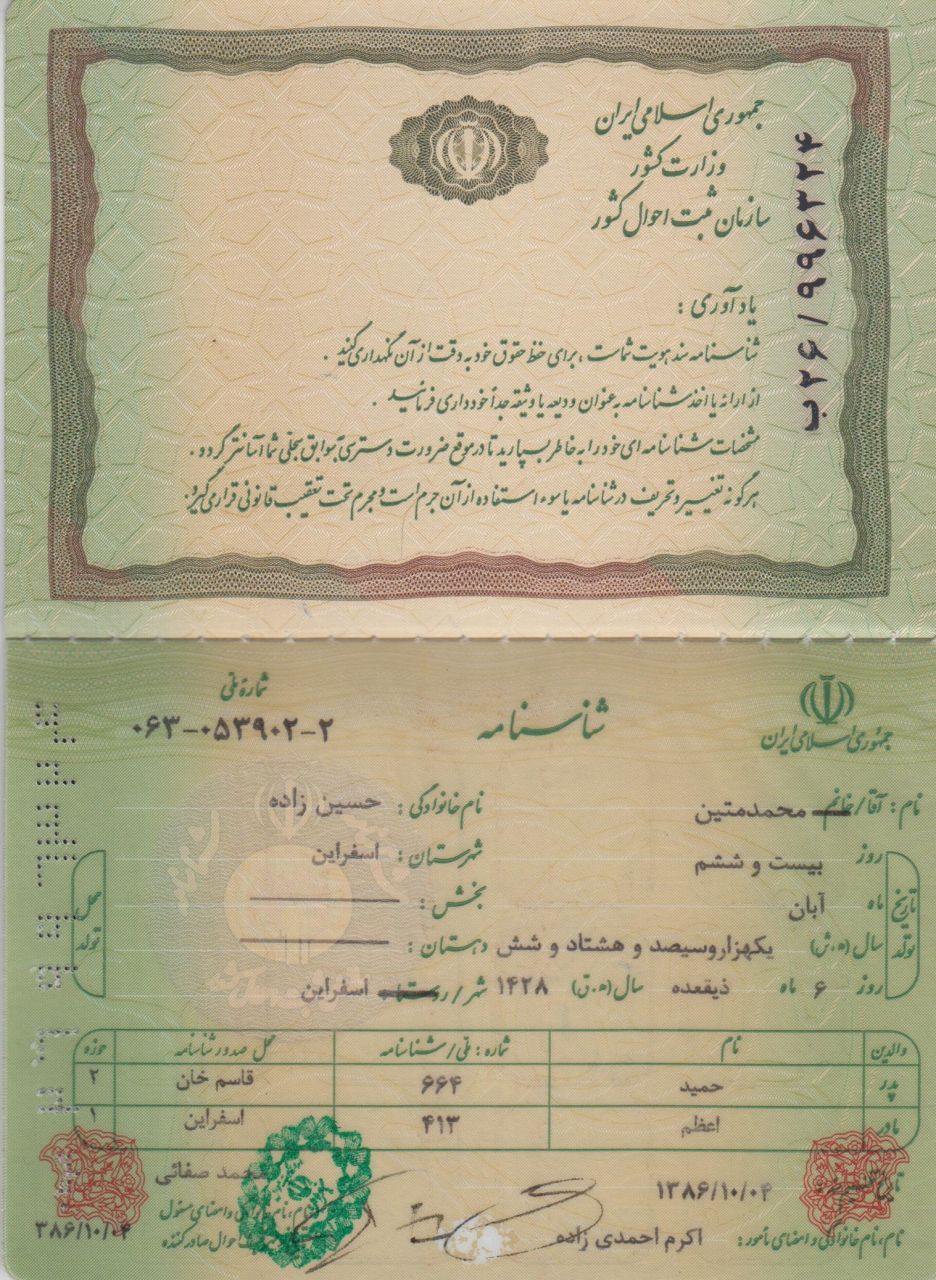 جمهوری اسلامی ایران
وزارت کشور
سازمان ثبت احوال کشور
ب۲۶/۹۹۶۳۲۴
یادآوری :
شناسنامه سند هویت شماست ، برای حفظ حقوق خود به دقت از آن نگهداری کنید .
از ارائه یا اخذ شناسنامه به عنوان ودیعه یا وثیقه جداً خودداری فرمائید .
مشخصات شناسنامه ای خود را به خاطر بسپارید تا در موقع ضرورت دسترسی بسوابق سجلی شما آسانتر گردد .
هرگونه تغییر و تحریف در شناسنامه یا سوء استفاده از آن جرم است و مجرم تحت تعقیب قانونی قرار می گیرد.
جمهوری اسلامی ایران
شناسنامه
شمارهٔ ملی
۰۶۳-۰۵۳۹۰۲-۲
نام : آقا/خانم محمدمتین نام خانوادگی : حسین زاده
تاریخ تولد
روز بیست و ششم
ماه آبان
سال (ه.ش) یکهزاروسیصد و هشتاد و شش
روز ۶ ماه ذیقعده سال (ه.ق) ۱۴۲۸
محل تولد
شهرستان : اسفراین
بخش :
دهستان :
شهر/روستا اسفراین
والدین نام شماره : ملی/شناسنامه محل صدور شناسنامه حوزه
پدر حمید ۶۶۴ قاسم خان ۲
مادر اعظم ۴۱۳ اسفراین ۱
۱۳۸۶/۱۰/۰۴
نام، نام خانوادگی و امضای مأمور : اکرم احمدی زاده
محمد صفائی
نام، نام خانوادگی و امضای مسئول
ثبت احوال صادرکننده
۳۸۶/۱۰/۰۴